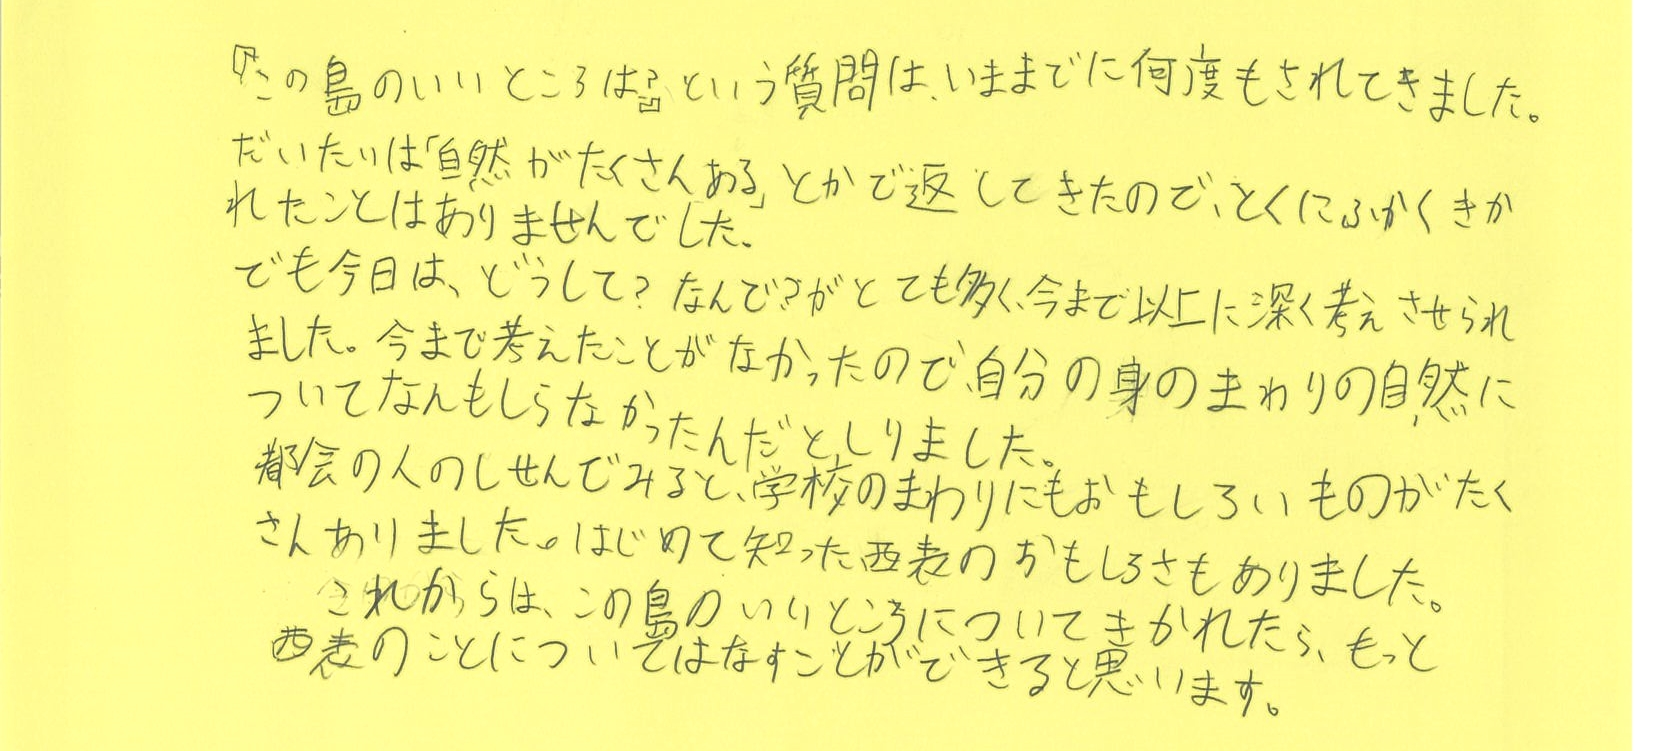 『この島のいいところは?』という質問は、いままでに何度もされてきました。
だいたいは「自然がたくさんある」とかで返してきたので、とくにふかくきか
れたことはありませんでした。
でも今日は、どうして?なんで?がとても多く、今まで以上に深く考えさせられ
ました。今まで考えたことがなかったので、自分の身のまわりの自然に
ついてなんもしらなかったんだと、しりました。
都会の人のしせんでみると、学校のまわりにもおもしろいものがたく
さんありました。はじめて知った西表のおもしろさもありました。
これからは、この島のいいところについてきかれたら、もっと
西表のことについてはなすことができると思います。